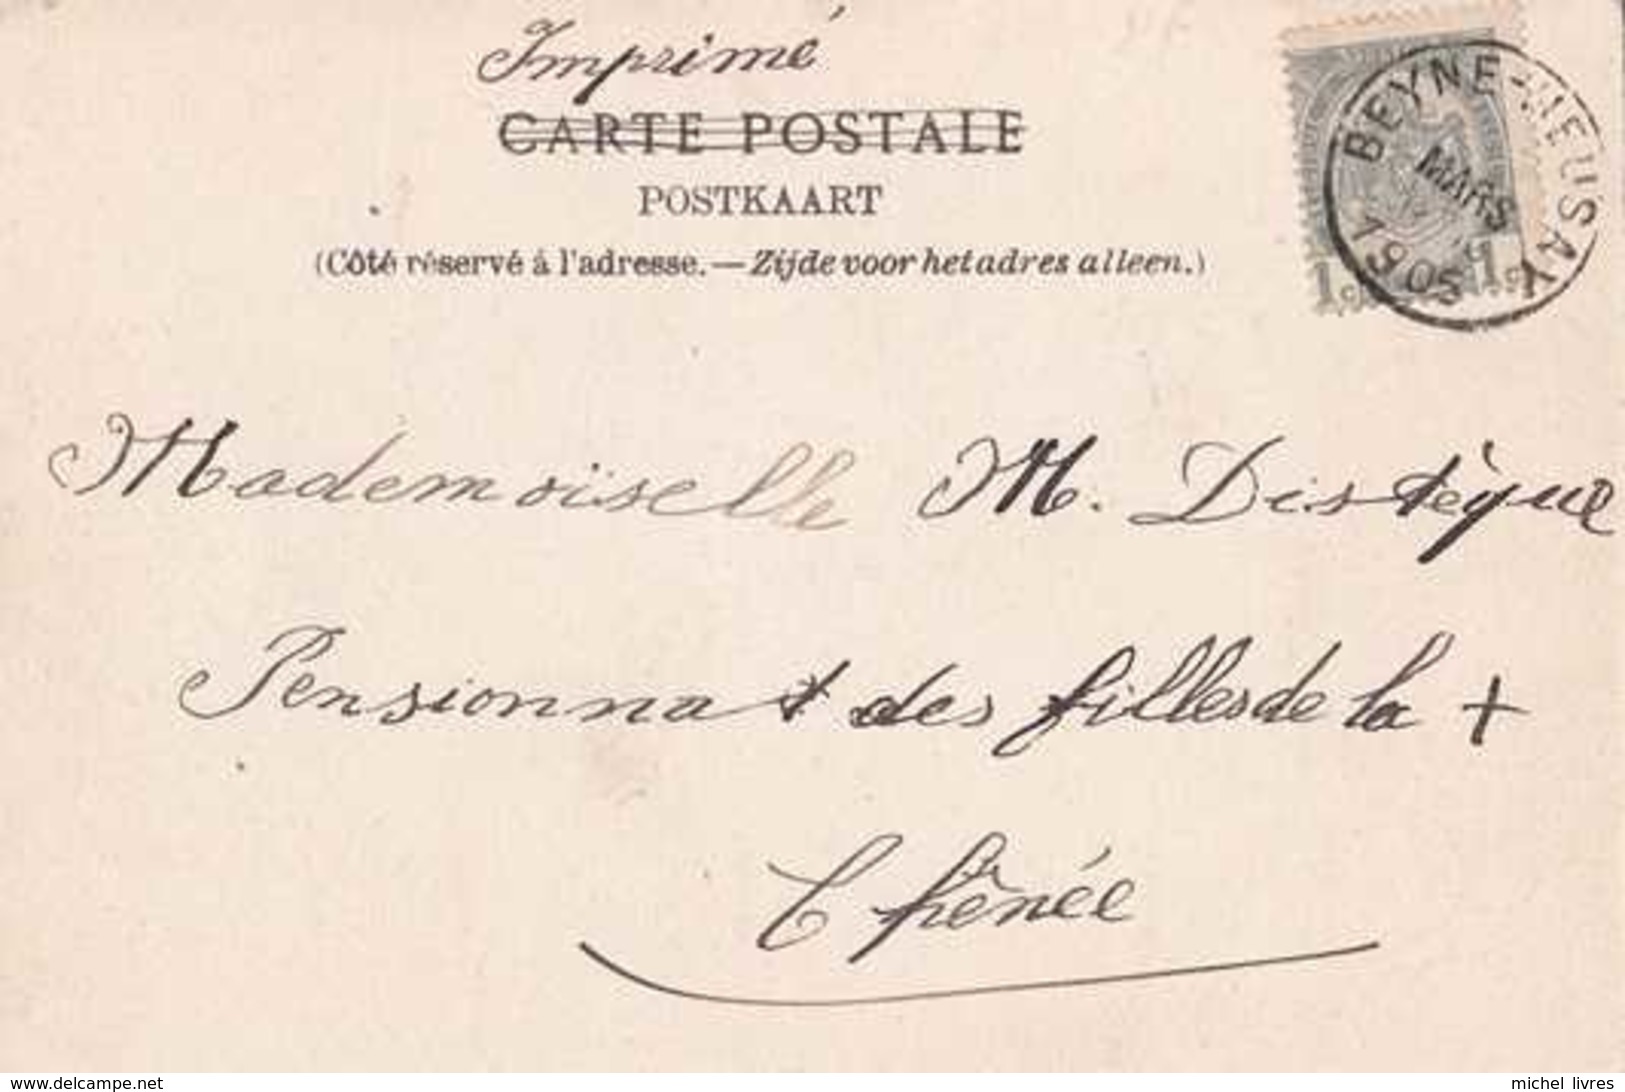 Imprimé
CARTE POSTALE
POSTKAART
(Côté réservé à l'adresse.—Zijde voor het adres alleen.)
BEYNE-HEUSAY
MARS
1905
1c 1c
Mademoiselle M. Distèque
Pensionnat des filles de la +
Chênée
www.delcampe.net
michel_livres